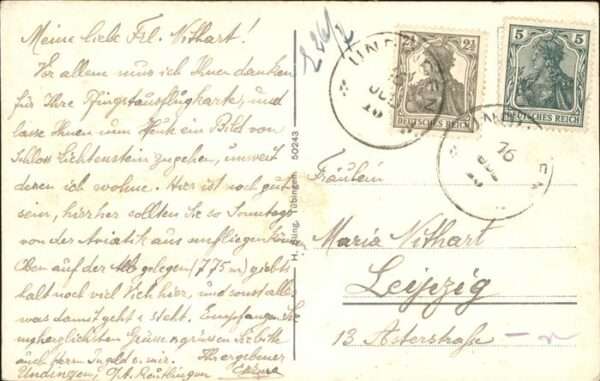 Meine liebe Frl. Nithart!
Vor allem muss ich Ihnen danken
für Ihre Pfingstausflugkarte, und
lasse Ihnen nun Heute ein Bild von
Schloss Lichtenstein zugehen, unweit
deren ich wohne. Hier ist noch gut
sein, hierher sollten Sie so Sonntags
von der Aviatik aus
Oben auf der Alb gelegen (775 m) giebts
halt noch viel Vieh hier, und sonst alles
was damit geht & steht. Empfangen Sie
herzlichsten Grüsse & grüssen Sie bitte
auch Herrn & mir. Ihr ergebener
Undingen, O/A. Reutlingen
H. Tübingen 50243
2½ 2½
DEUTSCHES REICH
5 5
DEUTSCHES REICH
UND
16
Fräulein
Maria Nithart
Leipzig
13 Asterstraße